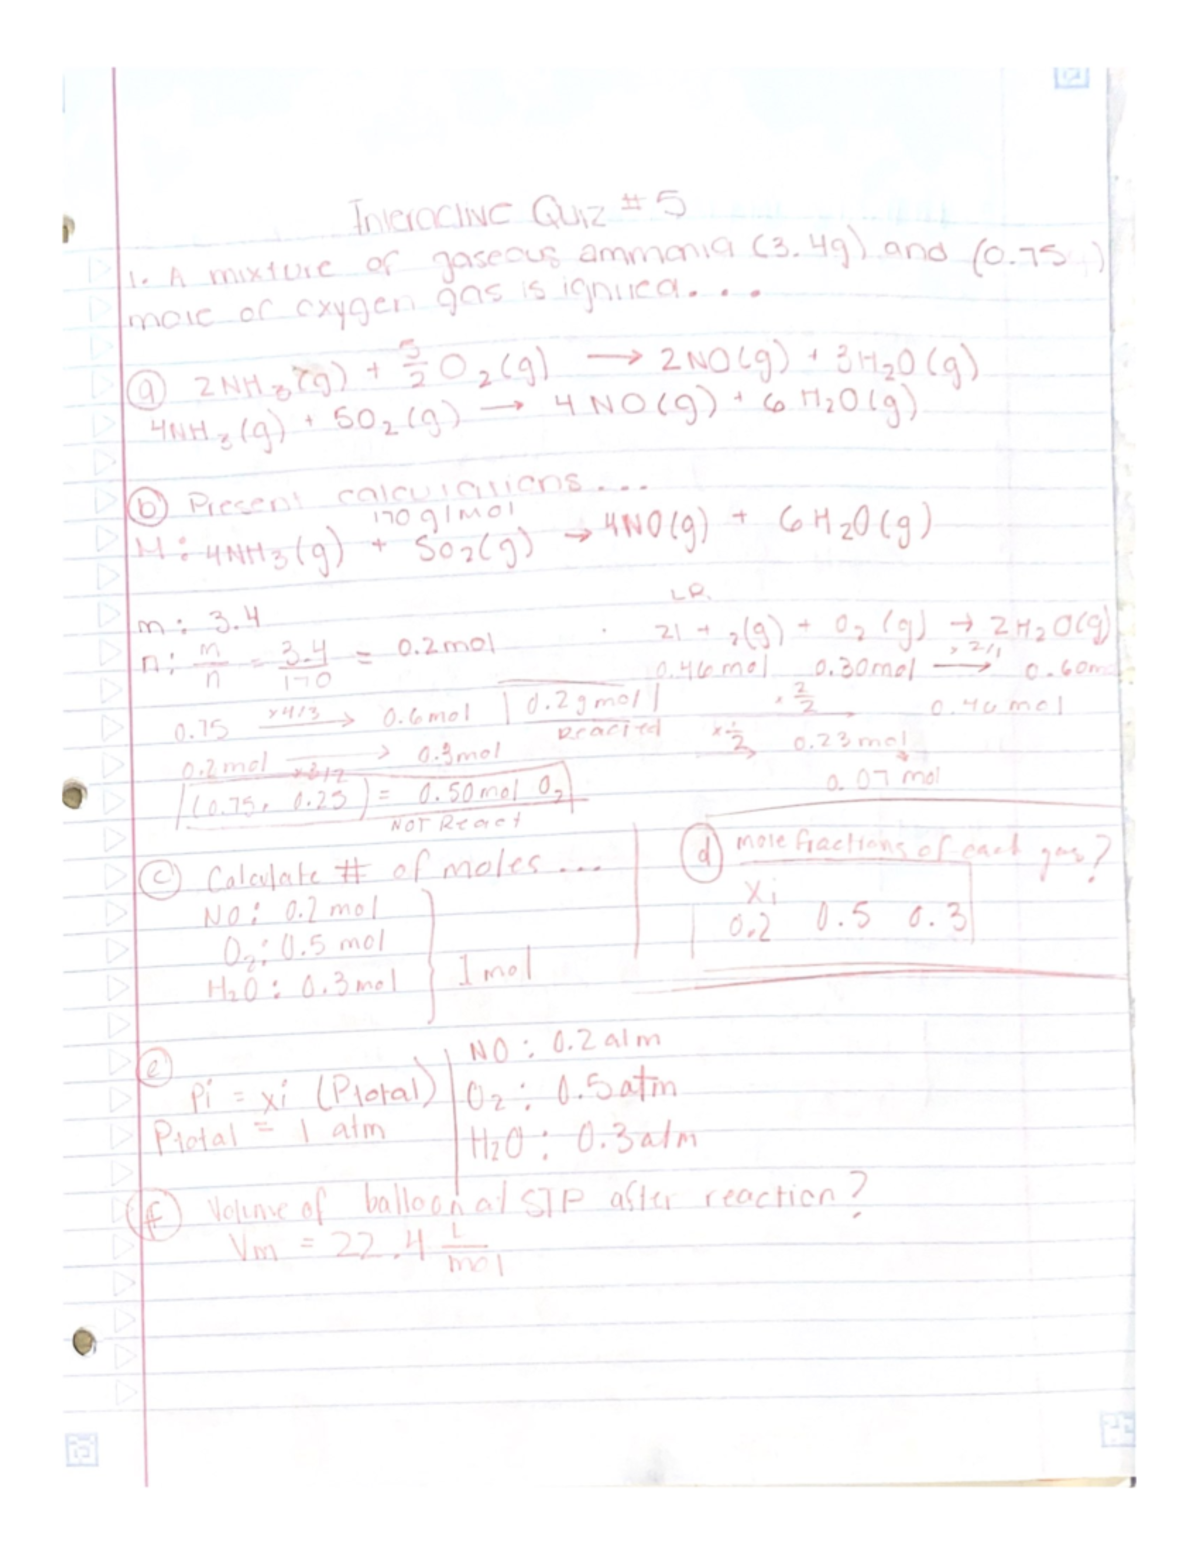 Interactive Quiz #5
1. A mixture of gaseous ammonia (3.4g) and (0.75)
mole of oxygen gas is ignited...
(a) 2NH3(g) + 5/2 O2(g) → 2NO(g) + 3H2O(g)
4NH3(g) + 5O2(g) → 4NO(g) + 6H2O(g)
(b) Present calculations...
170 g/mol
M: 4NH3(g) + 5O2(g) → 4NO(g) + 6H2O(g)
m: 3.4
n: m/n = 3.4/170 = 0.2mol
0.75 x4/3 → 0.6mol |0.25mol|
Reacted
0.2mol → 0.3mol
x3/2
(0.75, 0.25) = 0.50mol O2
NOT React
L.R.
2H2(g) + O2(g) → 2H2O(g)
0.46mol 0.30mol x2/1 → 0.60m
x 2/2 → 0.46mol
x 1/2 → 0.23mol
0.07mol
(c) Calculate # of moles...
NO: 0.2 mol
O2: 0.5 mol
H2O: 0.3mol
1 mol
(d) mole fractions of each gas?
Xi
0.2 0.5 0.3
(e)
Pi = xi (Ptotal)
Ptotal = 1 atm
NO: 0.2 atm
O2: 0.5atm
H2O: 0.3atm
(f) Volume of balloon at STP after reaction?
Vm = 22.4 L/mol